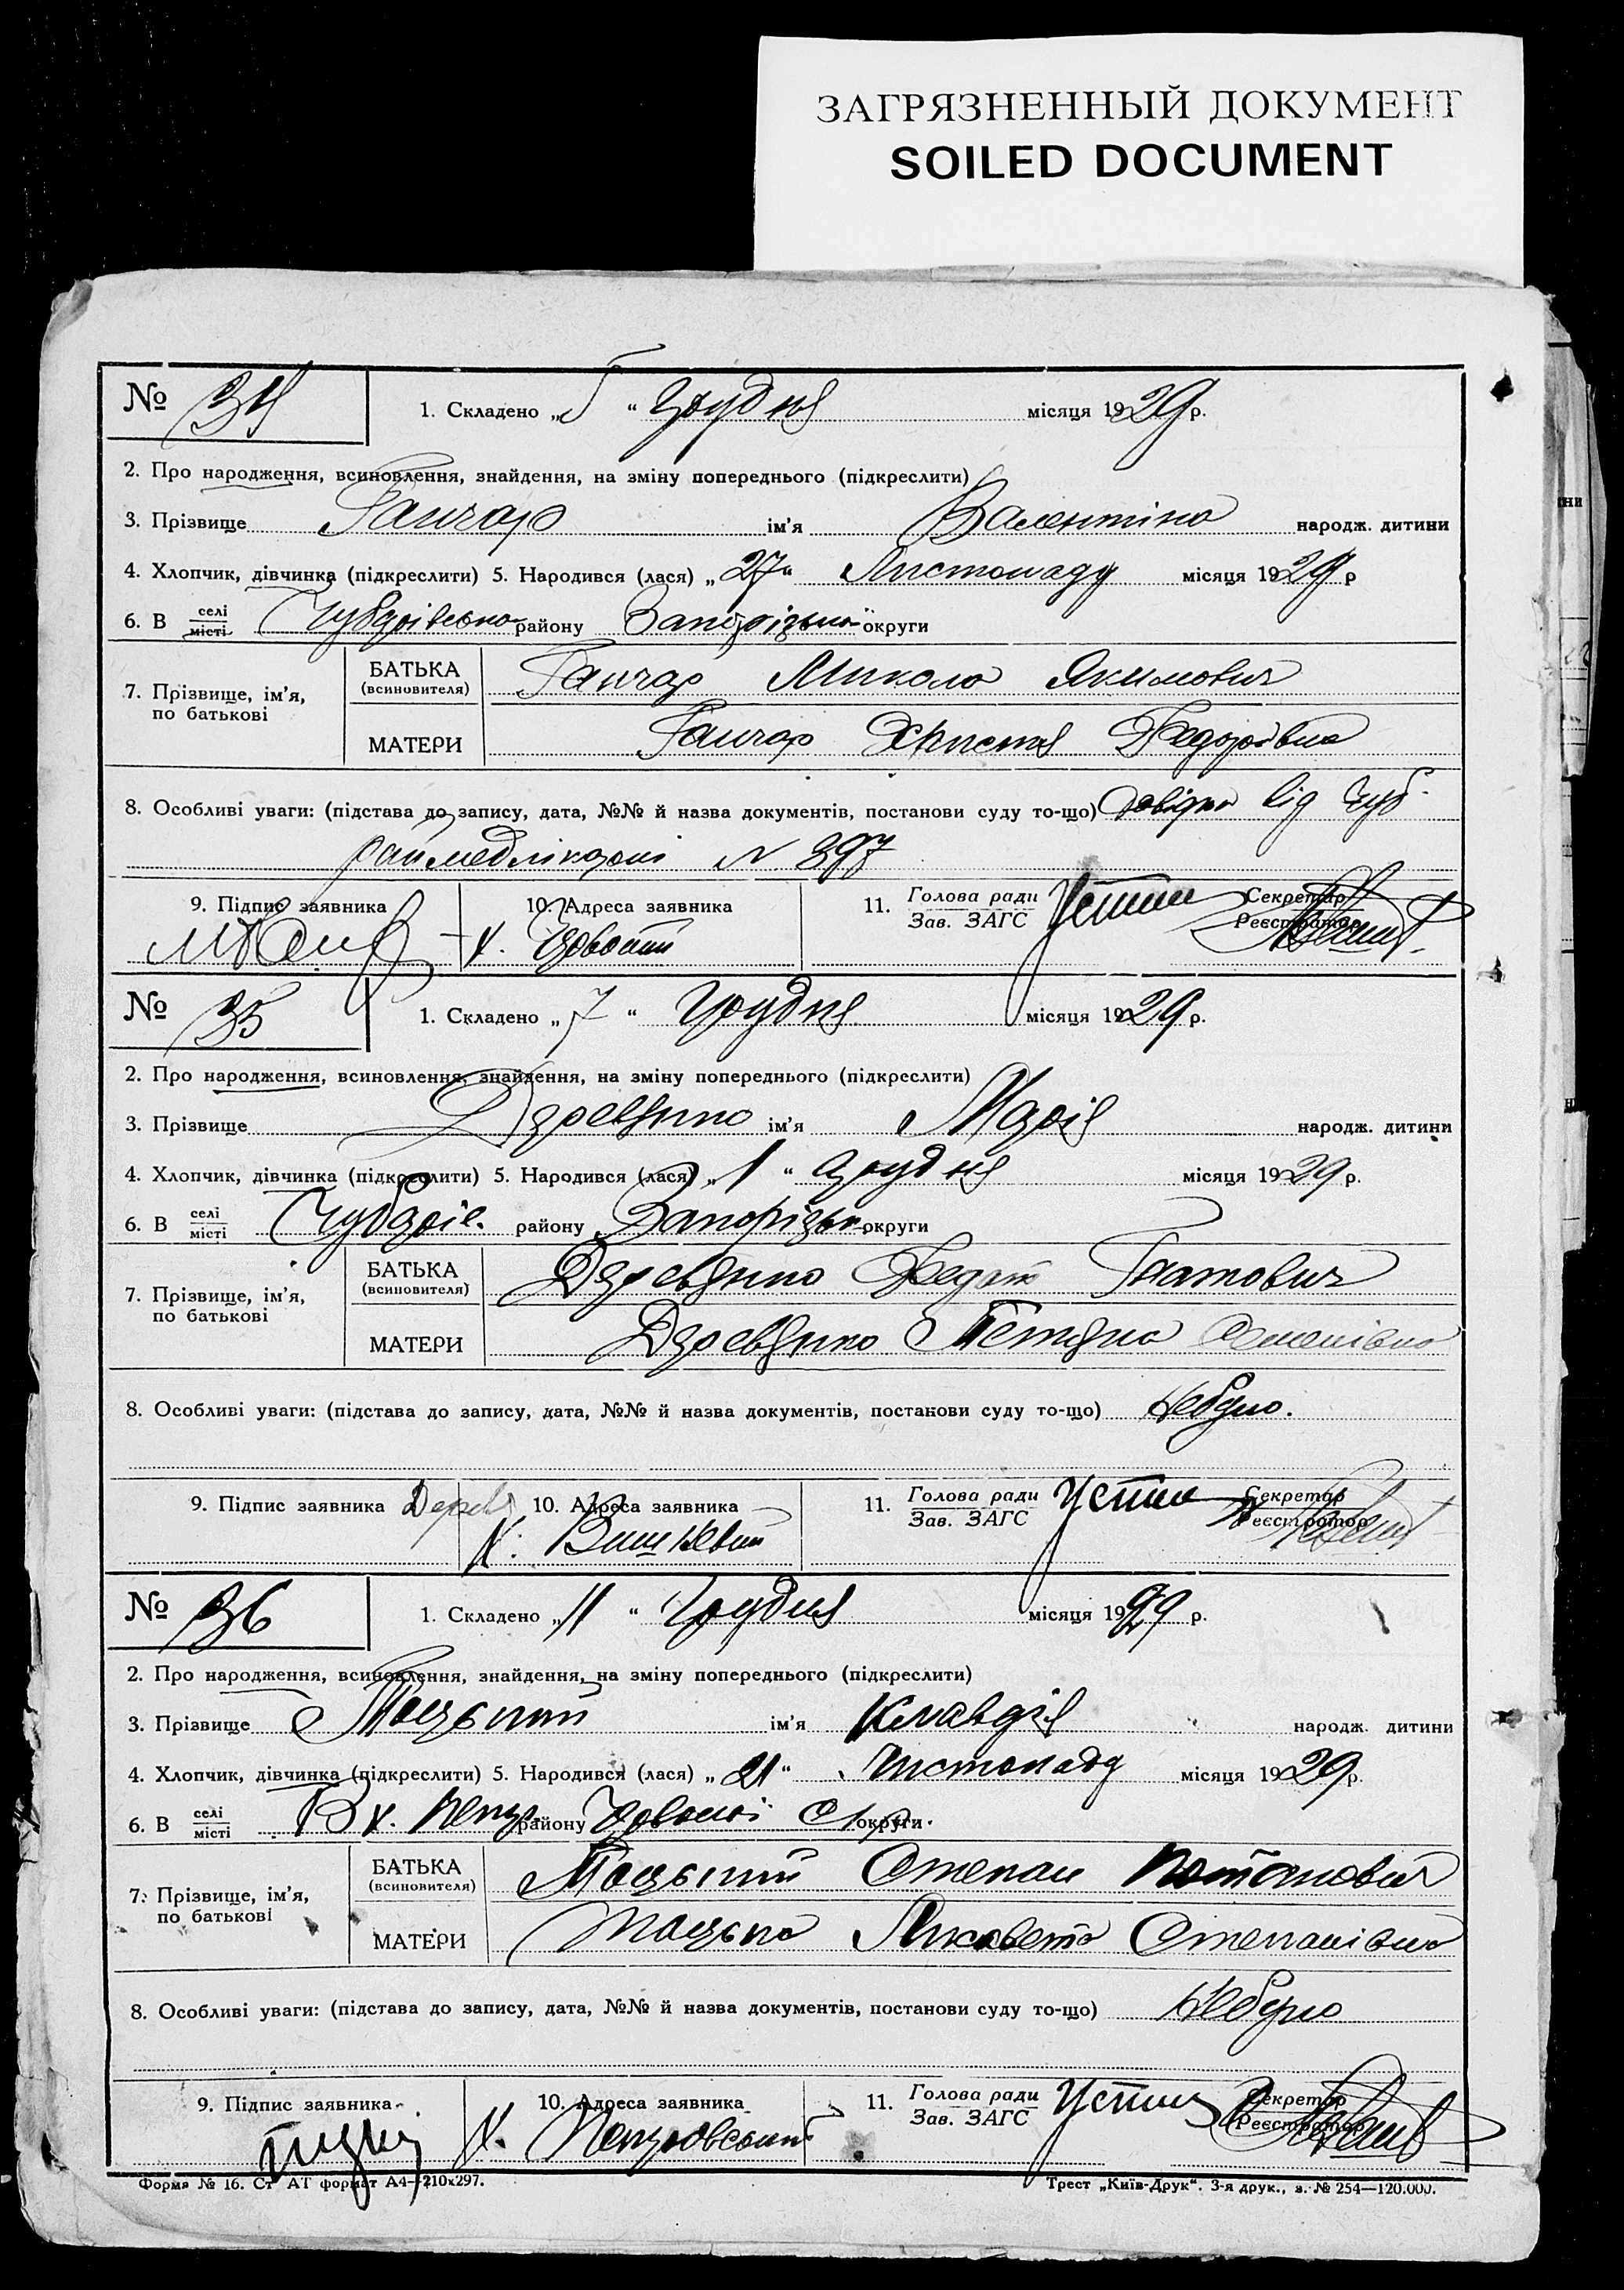 ЗАГРЯЗНЕННЫЙ ДОКУМЕНТ
SOILED DOCUMENT
№ 34 1. Складено „5“ Грудня місяця 1929 р.
2. Про народження, всиновлення, знайдення, на зміну попереднього (підкреслити)
3. Прізвище Ганчар ім'я Валентіна народж. дитини
4. Хлопчик, дівчинка (підкреслити) 5. Народився (лася) „27“ Листопаду місяця 1929 р
6. В селі місті району Запорізької округи
7. Прізвище, ім'я, по батькові БАТЬКА (всиновителя) Ганчар Микола Якимович
МАТЕРИ Ганчар Христя Федорівна
8. Особливі уваги: (підстава до запису, дата, №№ й назва документів, постанови суду то-що) Довідка від Чуб.
раймедлікарні N 397
9. Підпис заявника 10. Адреса заявника 11. Голова ради Зав. ЗАГС Секретар Реєстратор
х.
№ 35 1. Складено „7“ Грудня місяця 1929 р.
2. Про народження, всиновлення, знайдення, на зміну попереднього (підкреслити)
3. Прізвище ім'я Марія народж. дитини
4. Хлопчик, дівчинка (підкреслити) 5. Народився (лася) „1“ Грудня місяця 1929 р.
6. В селі місті району Запорізьк. округи
7. Прізвище, ім'я, по батькові БАТЬКА (всиновителя) Гнатович
МАТЕРИ
8. Особливі уваги: (підстава до запису, дата, №№ й назва документів, постанови суду то-що) Небуло.
9. Підпис заявника 10. Адреса заявника 11. Голова ради Зав. ЗАГС Секретар Реєстратор
х. Вишневий
№ 36 1. Складено „11“ Грудня місяця 1929 р.
2. Про народження, всиновлення, знайдення, на зміну попереднього (підкреслити)
3. Прізвище Мацький ім'я Клавдія народж. дитини
4. Хлопчик, дівчинка (підкреслити) 5. Народився (лася) „21“ Листопаду місяця 1929 р.
6. В селі місті В х. району округи
7. Прізвище, ім'я, по батькові БАТЬКА (всиновителя) Мацький Степан Потапович
МАТЕРИ Мацька Лисавета Степанівна
8. Особливі уваги: (підстава до запису, дата, №№ й назва документів, постанови суду то-що) Небуло
9. Підпис заявника 10. Адреса заявника 11. Голова ради Зав. ЗАГС Секретар Реєстратор
х.
Форма № 16. Ст АТ формат А4—210х297. Трест „Київ-Друк“. 3-я друк., з. № 254—120.000.